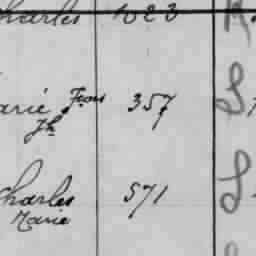 Charles 1023
Marie Frois 357 S
Jh
Charles 571 S
Marie